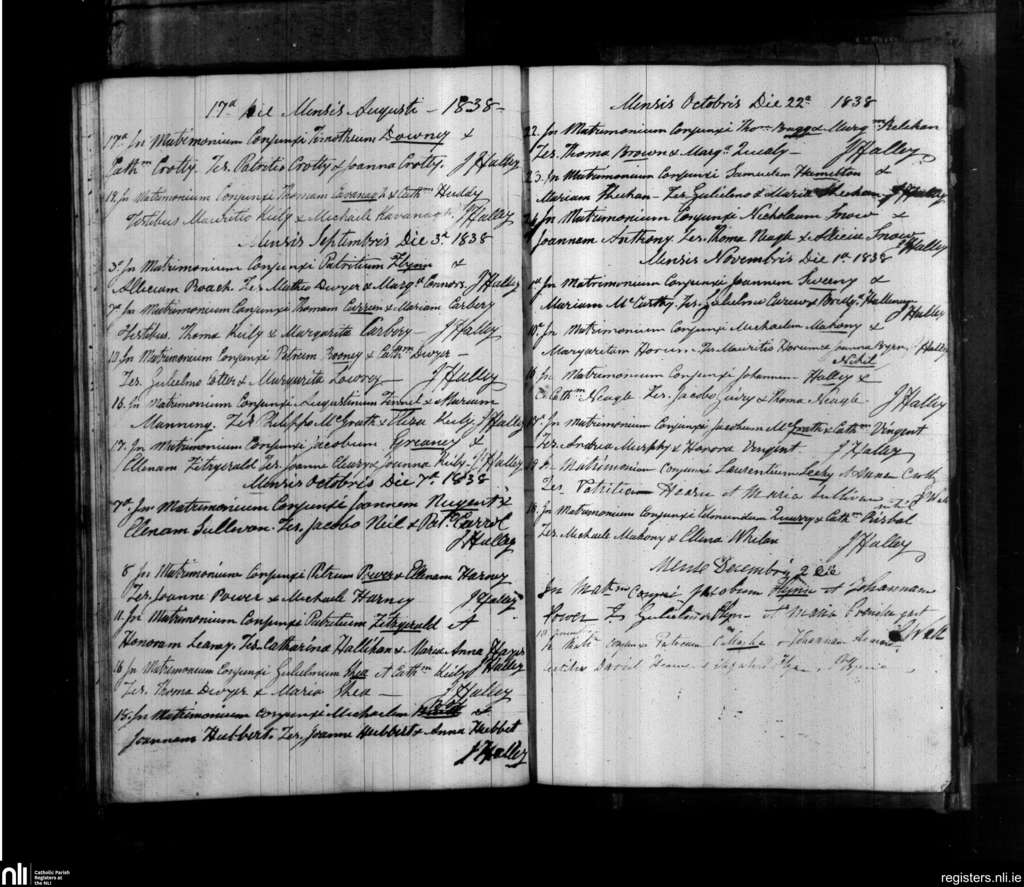 17a Die Mensis Augusti - 1838-
17a In Matrimonium Conjunxi Timotheum Downey &
Cathm Crotty. Tes. Patritio Crotty & Joanna Crotty. J Halley
In Matrimonium Conjunxi Thomam Kavanagh & Cathm Huddy
Testibus Mauritio Kiely & Michaele Kavanagh. J Halley
Mensis Septembris Die 3a 1838
3a In Matrimonium Conjunxi Patritium Flynn &
Alleciam Roach Tes. Mathio Dwyer & Margt Connors. J Halley
7a In Matrimonium Conjunxi Thomam Curren & Mariam Carbery
Testibus. Thoma Kiely & Margarita Carbery - J Halley
In Matrimonium Conjunxi Petrum Rooney & Cathm Dwyer -
Tes. Gulielmo Cotter & Margarita Lowrey - J Halley
In Matrimonium Conjunxi Augustinum & Mariam
Manning. Tes Philippo McGrath & Eliza Kiely J Halley
17. In Matrimonium Conjunxi Jacobum Greaney &
Ellenam Fitzgerald Tes. Joanne Cleary & Joanna Kiely. J Halley
Mensis Octobris Die 7a 1838
7a In Matrimonium Conjunxi Joannem Nugent &
Ellenam Sullivan. Tes. Jacobo Neil & Pat. Carrol
J Halley
8 In Matrimonium Conjunxi Petrum Power & Ellenam Harney
Tes. Joanne Power & Michaele Harney J Halley
11. In Matrimonium Conjunxi Patritium Fitzgerald et
Honoram Leamy. Tes. Catharina Hallihan & Maria Anna Hayes
J Halley
16 In Matrimonium Conjunxi Gulielmum Shea et Cathm Kiely
Tes. Thoma Dwyer & Maria Shea - J Halley
15. In Matrimonium Conjunxi Michaelem &
Joannam Hubbert. Tes. Joanne Hubbert & Anna Hubbert
J Halley
Mensis Octobris Die 22a 1838
22. In Matrimonium Conjunxi Thom & Margm Kelehan
Tes. Thoma Brown & Margt Quealy - J Halley
23. In Matrimonium Conjunxi Samuelem Hamilton &
Mariam Sheehan - Tes Gulielmo & Maria Sheehan J Halley
In Matrimonium Conjunxi Nicholaum Snow &
Joannam Anthony Tes. Thoma Neagle & Alicia Snow
J Halley
Mensis Novembris Die 1a 1838
1a In Matrimonium Conjunxi Joannem Sweeny &
Mariam McCarthy. Tes. Gulielmo Carew & Bridgt
J Halley
10a In Matrimonium Conjunxi Michaelem Mahony &
Margaritam Horun. Tes Mauritio Horun & Joanna Bryan J Halley
Nihil
In Matrimonium Conjunxi Johannem Halley &
Cathm Neagle Tes. Jacobo & Thoma Neagle J Halley
In Matrimonium Conjunxi Jacobum McGrath & Cathm Vingent
Tes. Andrea Murphy & Honora Vingent. J Halley
In Matrimonium Conjunxi Laurentium Leehy & Anna
Tes Patritio Hearn et Maria Sullivan Wall
18. In Matrimonium Conjunxi Edmundum & Cathm
Tes. Michaele Mahony & Ellena Whelan J Halley
Mense Decembris 2 Die
In Matm Conjunxi Jacobum Flynn et Johannam
Power Ts Gulielmo Flynn et Maria
J Wall
In Conjunxi Patricium et Johannam
David
nli
Catholic Parish
Registers at
the NLI
registers.nli.ie